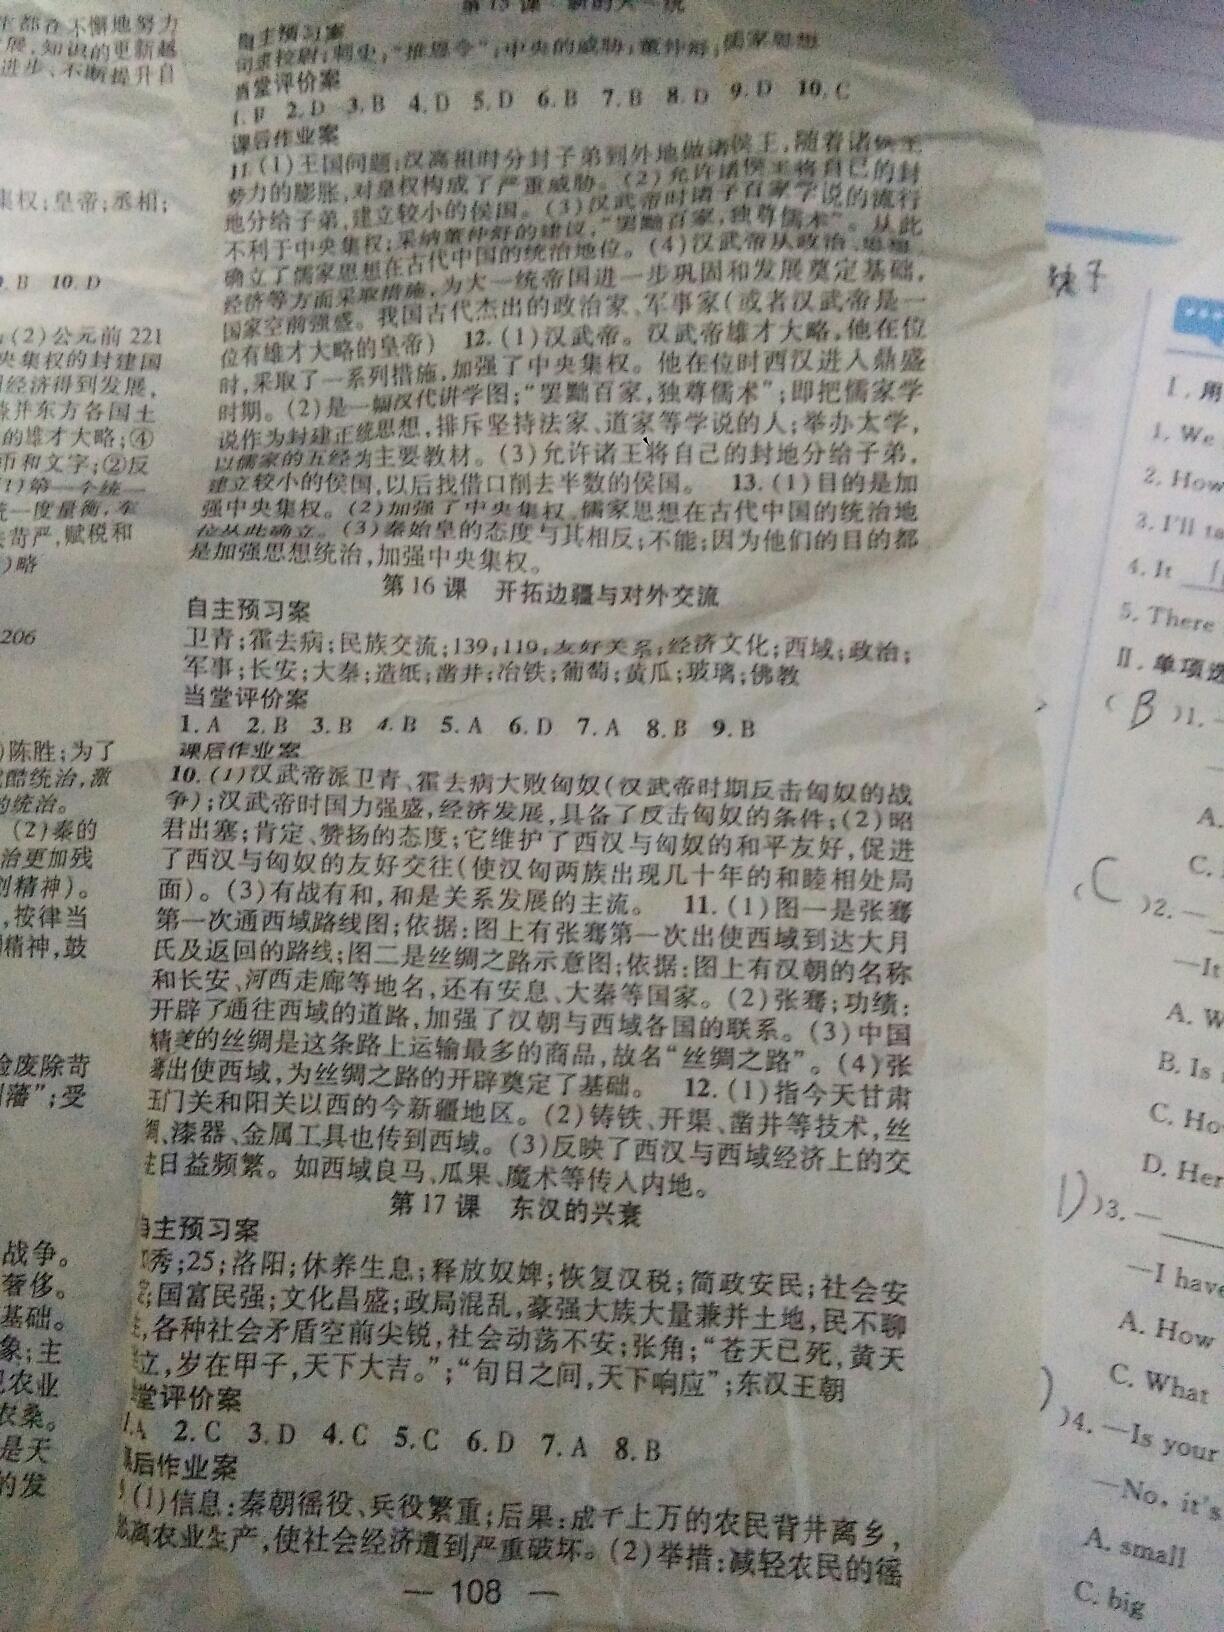 年都在不懈地努力
展,知识的更新越
进步、不断提升自
集权;皇帝;丞相;
B 10. D
(2)公元前 221
央集权的封建国
经济得到发展,
并东方各国土
的雄才大略;④
币和文字;②反
一度量衡,车
苛严,赋税和
)略
206
)陈胜;为了
酷统治,激
的统治。
(2)秦的
治更加残
创精神)。
,按律当
精神,鼓
废除苛
藩”;受
战争。
奢侈。
基础。
象;主
农业
农桑。
是天
的发
自主预习案
司隶校尉;刺史;“推恩令”;中央的威胁;董仲舒;儒家思想
当堂评价案
2. D 3. B 4. D 5. D 6. B 7. B 8. D 9. D 10. C
课后作业案
11. (1)王国问题;汉高祖时分封子弟到外地做诸侯王,随着诸侯王
势力的膨胀,对皇权构成了严重威胁。(2)允许诸侯王将自己的封
地分给子弟,建立较小的侯国。(3)汉武帝时诸子百家学说的流行
不利于中央集权;采纳董仲舒的建议,“罢黜百家,独尊儒术”。从此
确立了儒家思想在古代中国的统治地位。(4)汉武帝从政治、思想、
经济等方面采取措施,为大一统帝国进一步巩固和发展奠定基础,
国家空前强盛。我国古代杰出的政治家、军事家(或者汉武帝是一
位有雄才大略的皇帝) 12. (1)汉武帝。汉武帝雄才大略,他在位
时,采取了一系列措施,加强了中央集权。他在位时西汉进入鼎盛
时期。(2)是一幅汉代讲学图;“罢黜百家,独尊儒术”;即把儒家学
说作为封建正统思想,排斥坚持法家、道家等学说的人;举办太学,
以儒家的五经为主要教材。(3)允许诸王将自己的封地分给子弟,
建立较小的侯国,以后找借口削去半数的侯国。 13. (1)目的是加
强中央集权。(2)加强了中央集权。儒家思想在古代中国的统治地
位从此确立。(3)秦始皇的态度与其相反;不能;因为他们的目的都
是加强思想统治,加强中央集权。
第 16 课 开拓边疆与对外交流
自主预习案
卫青;霍去病;民族交流;139;119;友好关系;经济文化;西域;政治;
军事;长安;大秦;造纸;凿井;冶铁;葡萄;黄瓜;玻璃;佛教
当堂评价案
1. A 2. B 3. B 4. B 5. A 6. D 7. A 8. B 9. B
课后作业案
10. (1)汉武帝派卫青、霍去病大败匈奴(汉武帝时期反击匈奴的战
争);汉武帝时国力强盛,经济发展,具备了反击匈奴的条件;(2)昭
君出塞;肯定、赞扬的态度;它维护了西汉与匈奴的和平友好,促进
了西汉与匈奴的友好交往(使汉匈两族出现几十年的和睦相处局
面)。(3)有战有和,和是关系发展的主流。 11. (1)图一是张骞
第一次通西域路线图;依据:图上有张骞第一次出使西域到达大月
氏及返回的路线;图二是丝绸之路示意图;依据:图上有汉朝的名称
和长安、河西走廊等地名,还有安息、大秦等国家。(2)张骞;功绩:
开辟了通往西域的道路,加强了汉朝与西域各国的联系。(3)中国
精美的丝绸是这条路上运输最多的商品,故名“丝绸之路”。(4)张
骞出使西域,为丝绸之路的开辟奠定了基础。 12. (1)指今天甘肃
玉门关和阳关以西的今新疆地区。(2)铸铁、开渠、凿井等技术,丝
绸、漆器、金属工具也传到西域。(3)反映了西汉与西域经济上的交
往日益频繁。如西域良马、瓜果、魔术等传入内地。
第 17 课 东汉的兴衰
自主预习案
秀;25;洛阳;休养生息;释放奴婢;恢复汉税;简政安民;社会安
定;国富民强;文化昌盛;政局混乱,豪强大族大量兼并土地,民不聊
生,各种社会矛盾空前尖锐,社会动荡不安;张角;“苍天已死,黄天
立,岁在甲子,天下大吉。”;“旬日之间,天下响应”;东汉王朝
当堂评价案
1. A 2. C 3. D 4. C 5. C 6. D 7. A 8. B
课后作业案
(1)信息:秦朝徭役、兵役繁重;后果:成千上万的农民背井离乡,
离农业生产,使社会经济遭到严重破坏。(2)举措:减轻农民的徭
— 108 —
Ⅰ. 用
1. We
2. How
3. I'll ta
4. It
5. There
Ⅱ. 单项选
( B )1. —
A.
C.
( C )2. —
—It
A. W
B. Is
C. Ho
D. Her
D )3. —
—I have
A. How
C. What
)4. —Is your
—No, it's
A. small
C. big